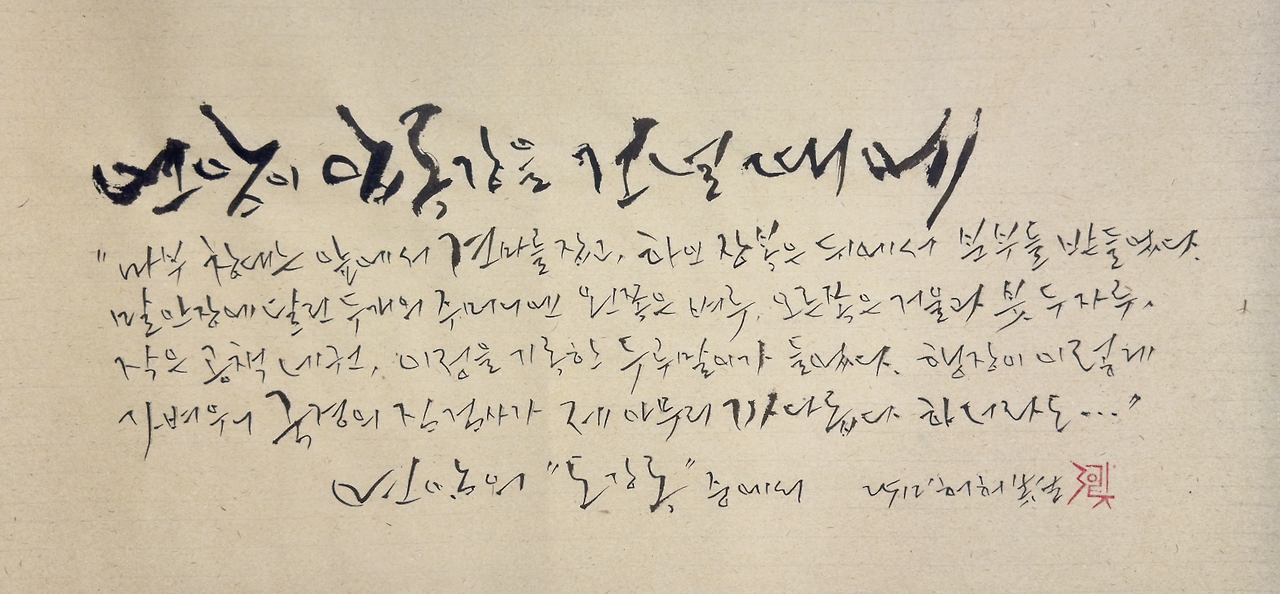 연암이 압록강을 건널 때에
"마부 창대는 앞에서 견마를 잡고, 하인 장복은 뒤에서 분부를 받들었다.
말안장에 달린 두개의 주머니엔 왼쪽은 벼루, 오른쪽은 거울과 붓 두 자루,
작은 공책 네권, 이정을 기록한 두루말이가 들었다. 행장이 이렇게
가벼우니 국경의 짐검사가 제 아무리 까다롭다 하더라도..."
연암의 "도강록" 중에서